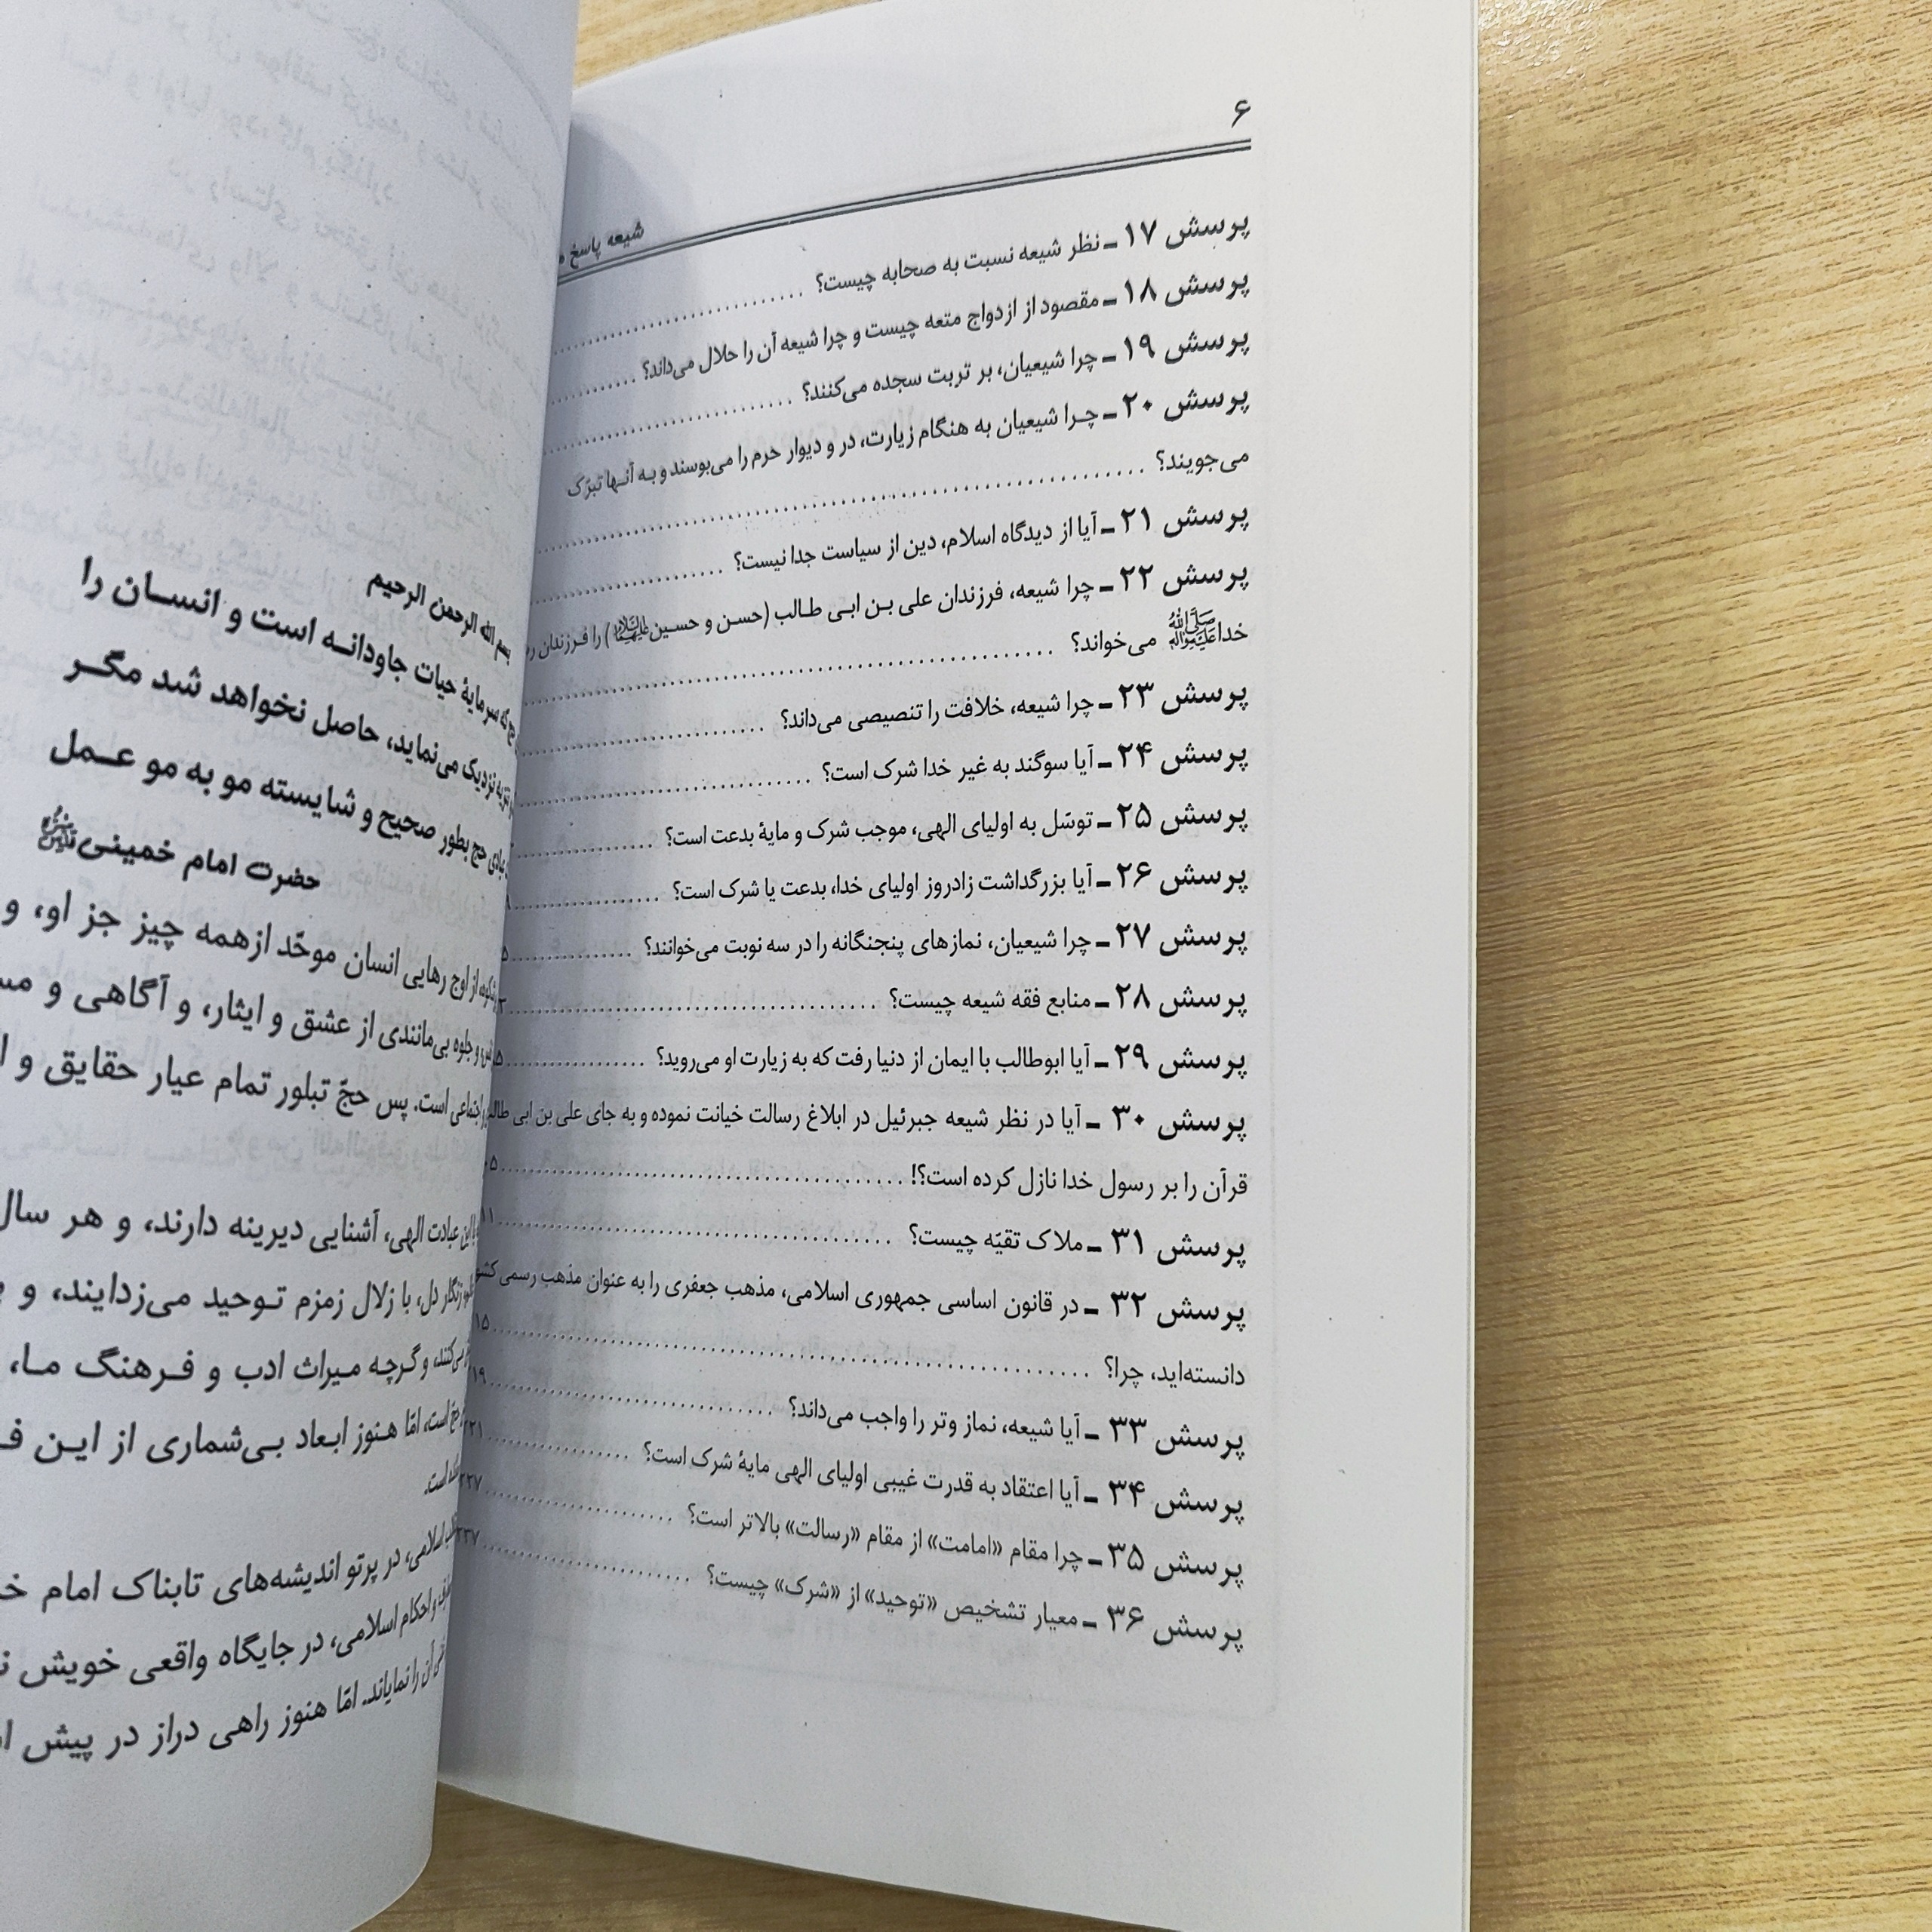 ۶
شیعه پاسخ
پرسش ۱۷ ـ نظر شیعه نسبت به صحابه چیست؟
پرسش ۱۸ ـ مقصود از ازدواج متعه چیست و چرا شیعه آن را حلال می‌داند؟
پرسش ۱۹ ـ چرا شیعیان، بر تربت سجده می‌کنند؟
پرسش ۲۰ ـ چرا شیعیان به هنگام زیارت، در و دیوار حرم را می‌بوسند و به آنها تبرّک
می‌جویند؟
پرسش ۲۱ ـ آیا از دیدگاه اسلام، دین از سیاست جدا نیست؟
پرسش ۲۲ ـ چرا شیعه، فرزندان علی بن ابی طالب (حسن و حسین علیهماالسلام) را فرزندان
خدا ﷺ می‌خواند؟
پرسش ۲۳ ـ چرا شیعه، خلافت را تنصیصی می‌داند؟
پرسش ۲۴ ـ آیا سوگند به غیر خدا شرک است؟
پرسش ۲۵ ـ توسّل به اولیای الهی، موجب شرک و مایهٔ بدعت است؟
پرسش ۲۶ ـ آیا بزرگداشت زادروز اولیای خدا، بدعت یا شرک است؟
پرسش ۲۷ ـ چرا شیعیان، نمازهای پنجگانه را در سه نوبت می‌خوانند؟
پرسش ۲۸ ـ منابع فقه شیعه چیست؟
پرسش ۲۹ ـ آیا ابوطالب با ایمان از دنیا رفت که به زیارت او می‌روید؟
پرسش ۳۰ ـ آیا در نظر شیعه جبرئیل در ابلاغ رسالت خیانت نموده و به جای علی بن ابی طالب
قرآن را بر رسول خدا نازل کرده است؟!
پرسش ۳۱ ـ ملاک تقیّه چیست؟
پرسش ۳۲ ـ در قانون اساسی جمهوری اسلامی، مذهب جعفری را به عنوان مذهب رسمی
دانسته‌اید، چرا؟
پرسش ۳۳ ـ آیا شیعه، نماز وتر را واجب می‌داند؟
پرسش ۳۴ ـ آیا اعتقاد به قدرت غیبی اولیای الهی مایهٔ شرک است؟
پرسش ۳۵ ـ چرا مقام «امامت» از مقام «رسالت» بالاتر است؟
پرسش ۳۶ ـ معیار تشخیص «توحید» از «شرک» چیست؟
بسم الله الرحمن الرحیم
که سرمایهٔ حیات جاودانه است و انسان را
نزدیک می‌نماید، حاصل نخواهد شد مگر
حج بطور صحیح و شایسته مو به مو عمل
حضرت امام خمینی قدس سره
از اوج رهایی انسان موحّد از همه چیز جز او، و
و جلوه بی‌مانندی از عشق و ایثار، و آگاهی و
اجتماعی است. پس حجّ تبلور تمام عیار حقایق و
این عبادت الهی، آشنایی دیرینه دارند، و هر سال
زنگار دل، با زلال زمزم توحید می‌زدایند، و
و گرچه میراث ادب و فرهنگ ما،
است، امّا هنوز ابعاد بی‌شماری از این
است.
اسلامی، در پرتو اندیشه‌های تابناک امام
و احکام اسلامی، در جایگاه واقعی خویش
آن را نمایاند. امّا هنوز راهی دراز در پیش